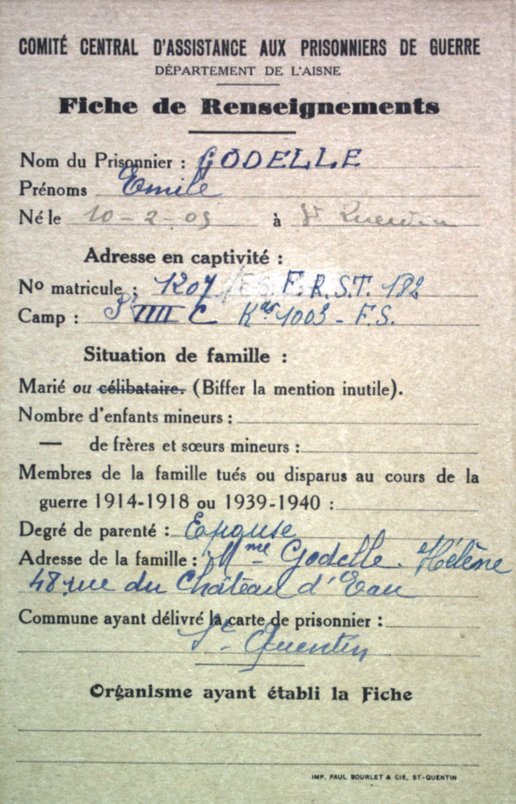 COMITÉ CENTRAL D'ASSISTANCE AUX PRISONNIERS DE GUERRE
DÉPARTEMENT DE L'AISNE
Fiche de Renseignements
Nom du Prisonnier : GODELLE
Prénoms Emile
Né le 10-2-09 à St Quentin
Adresse en captivité :
No matricule : 1207 F.R.S.T. 182
Camp : VIII C 1003 - F.S.
Situation de famille :
Marié ou célibataire. (Biffer la mention inutile).
Nombre d'enfants mineurs :
— de frères et sœurs mineurs :
Membres de la famille tués ou disparus au cours de la
guerre 1914-1918 ou 1939-1940 :
Degré de parenté : Epouse
Adresse de la famille : Mme Godelle Hélène
48 rue du Château d'Eau
Commune ayant délivré la carte de prisonnier :
St Quentin
Organisme ayant établi la Fiche
IMP. PAUL BOURLET & CIE, ST-QUENTIN